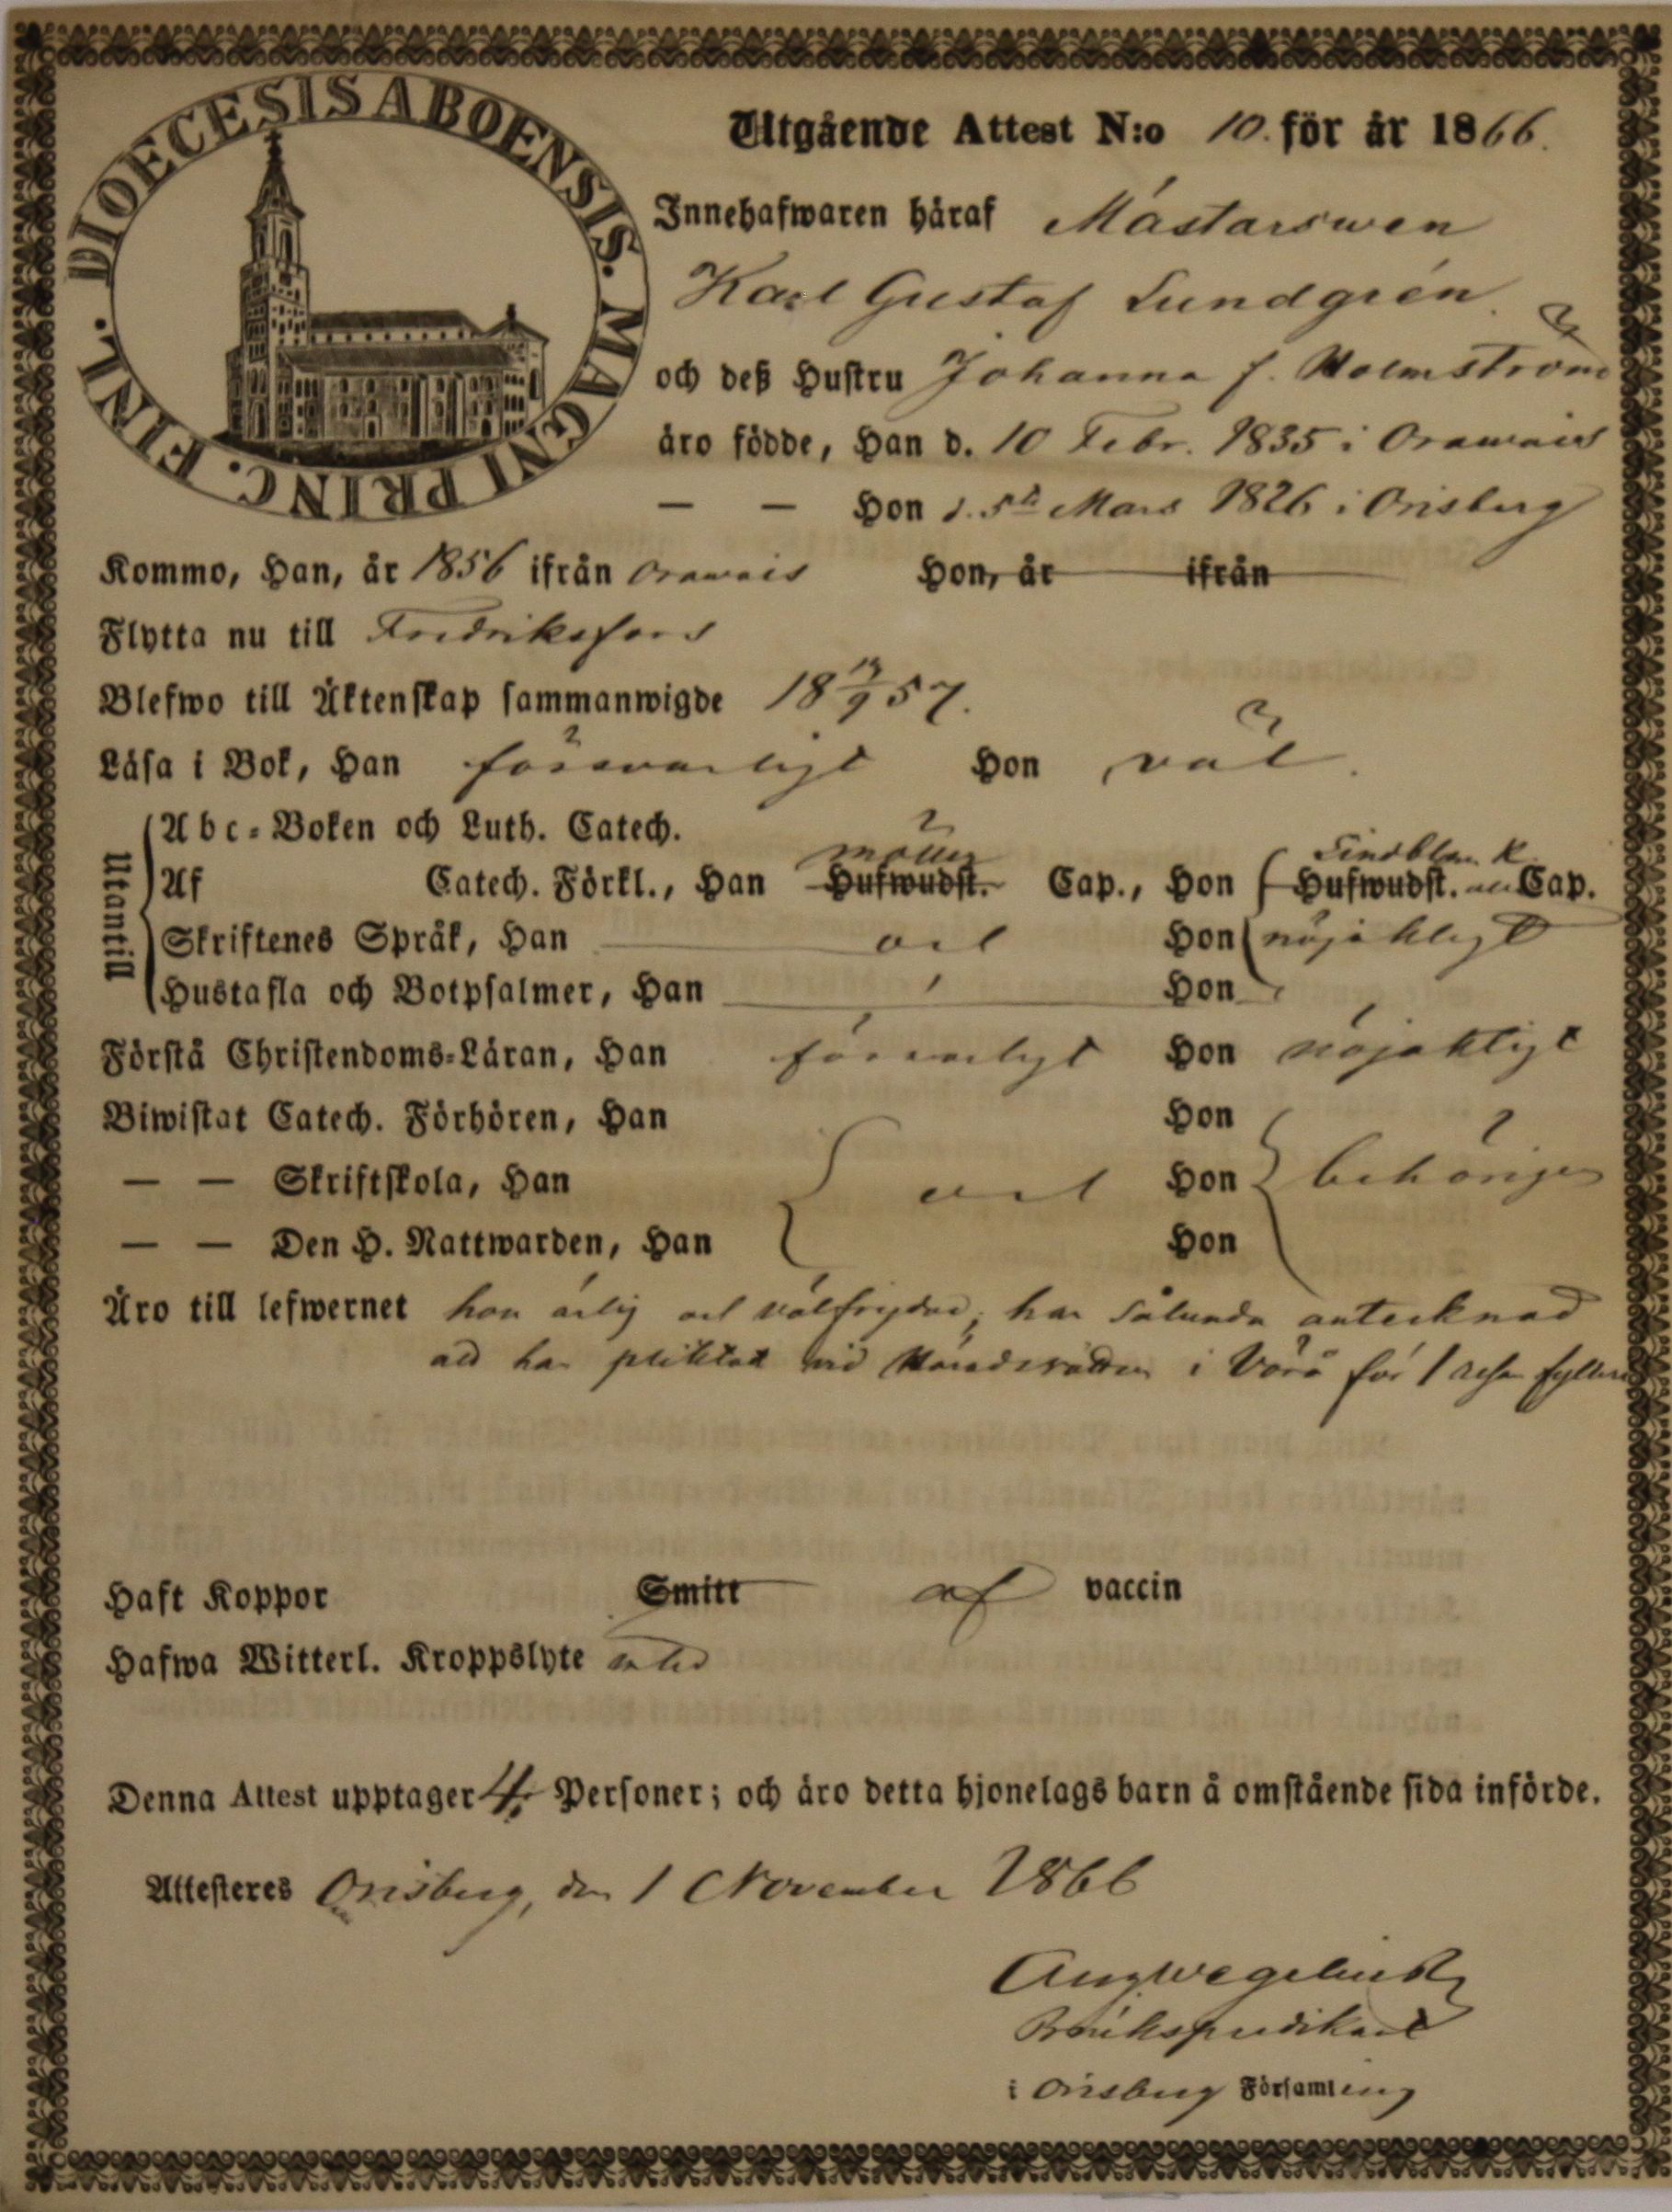 DIOECESIS ABOENSIS. MAGNI PRINC. FINL.
Utgående Attest N:o 10. för år 1866.
Innehafwaren häraf Mästarswen
Karl Gustaf Lundgrén.
och deß Hustru Johanna f. Holmström
äro födde, Han d. 10 Febr. 1835 i Orawais
— — Hon d. 5te Mars 1826 i Orisberg
Kommo, Han, år 1856 ifrån Orawais Hon, år ifrån
Flytta nu till Fredriksfors
Blefwo till Äktenskap sammanwigde 18 /9 57.
Läsa i Bok, Han försvarligt Hon väl.
Utantill
Abc-Boken och Luth. Catech.
Möller Lindblom
Af Catech. Förkl., Han Hufwudst. Cap., Hon Hufwudst. Cap.
Skriftenes Språk, Han Hon nöjaktligt
Hustafla och Botpsalmer, Han Hon
Förstå Christendoms-Läran, Han försvarligt Hon nöjaktligt
Biwistat Catech. Förhören, Han Hon
— — Skriftskola, Han Hon behörigen
— — Den H. Nattwarden, Han Hon
Äro till lefwernet hon ärlig och välfrejdad; han sålunda antecknad
att han pliktat vid Häradsrätten i Vörå för 1 resan fylleri
Haft Koppor Smitt af vaccin
Hafwa Witterl. Kroppslyte
Denna Attest upptager 4. Personer; och äro detta hjonelags barn å omstående sida införde.
Attesteres Orisberg, den 1 November 1866
Aug Wegelius
Brukspredikant
i Orisberg Församling